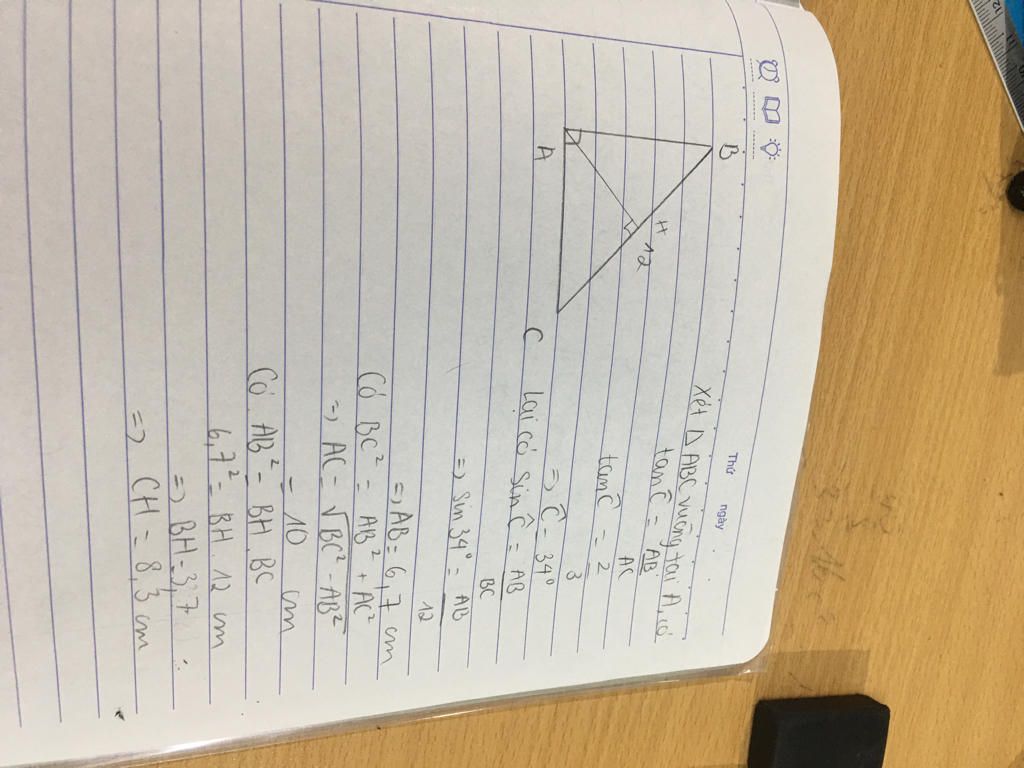 Thứ ngày
Xét Δ ABC vuông tại A, có
tan Ĉ = AB
AC
tan Ĉ = 2
3
=> Ĉ = 34°
Lại có sin Ĉ = AB
BC
=> Sin 34° = AB
12
=> AB = 6,7 cm
Có BC² = AB² + AC²
=> AC = √BC² - AB²
= 10 cm
Có AB² = BH. BC
6,7² = BH. 12 cm
=> BH = 3,7
=> CH = 8,3 cm
B
H
12
A
C